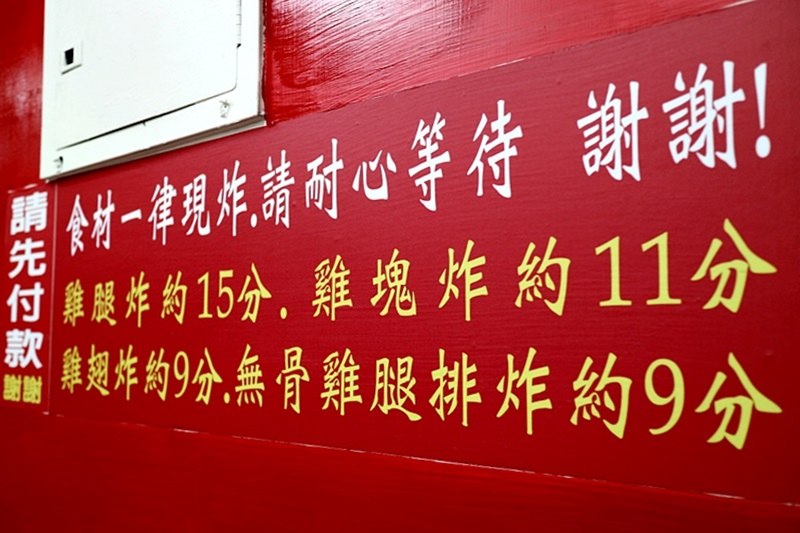 請先付款
謝謝
食材一律現炸.請耐心等待 謝謝!
雞腿炸約15分.雞塊炸約11分
雞翅炸約9分.無骨雞腿排炸約9分